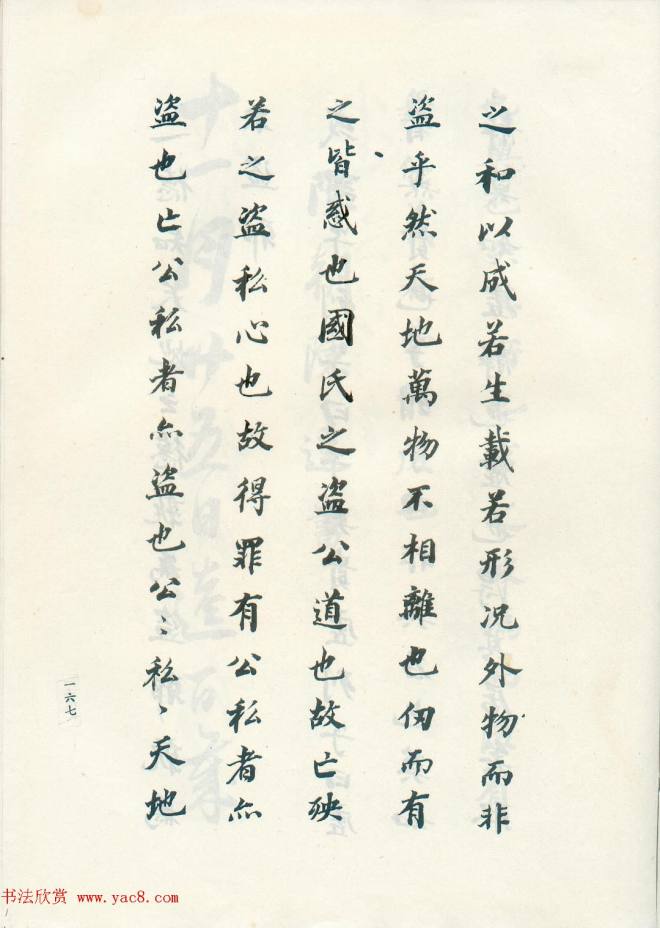 之和以成若生載若形况外物而非
盗乎然天地萬物不相離也仞而有
之皆惑也國氏之盗公道也故亡殃
若之盗私心也故得罪有公私者亦
盗也亡公私者亦盗也公〻私〻天地
一六七
书法欣赏 www.yac8.com